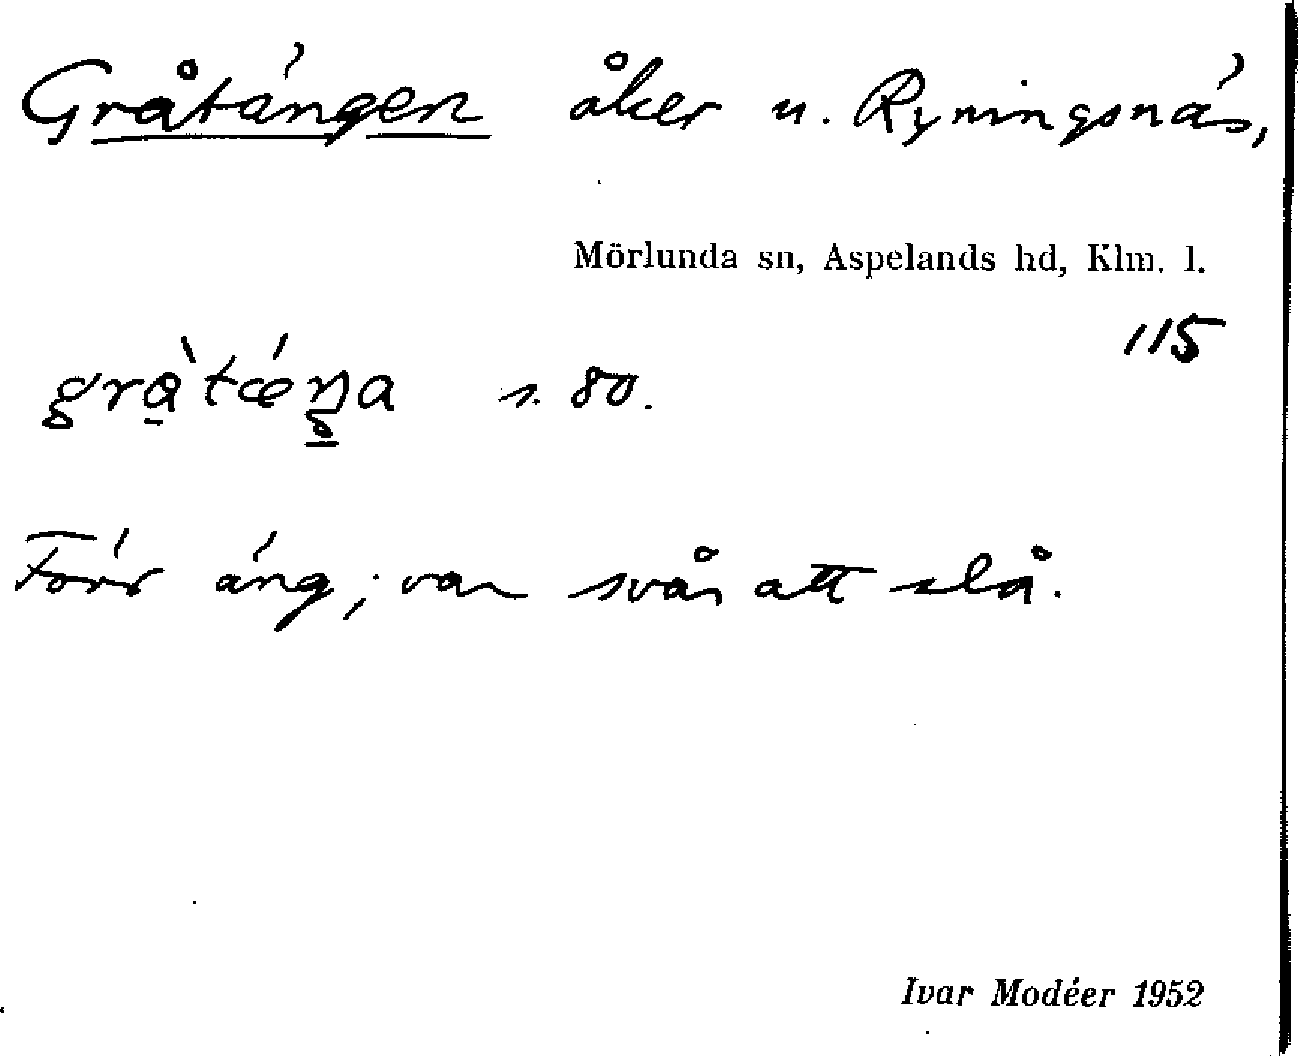 Gråtängen åker u. Ryningsnäs,
Mörlunda sn, Aspelands hd, Klm. l.
115
gràtǽŋa s. 80.
Förr äng; var svår att slå.
Ivar Modéer 1952